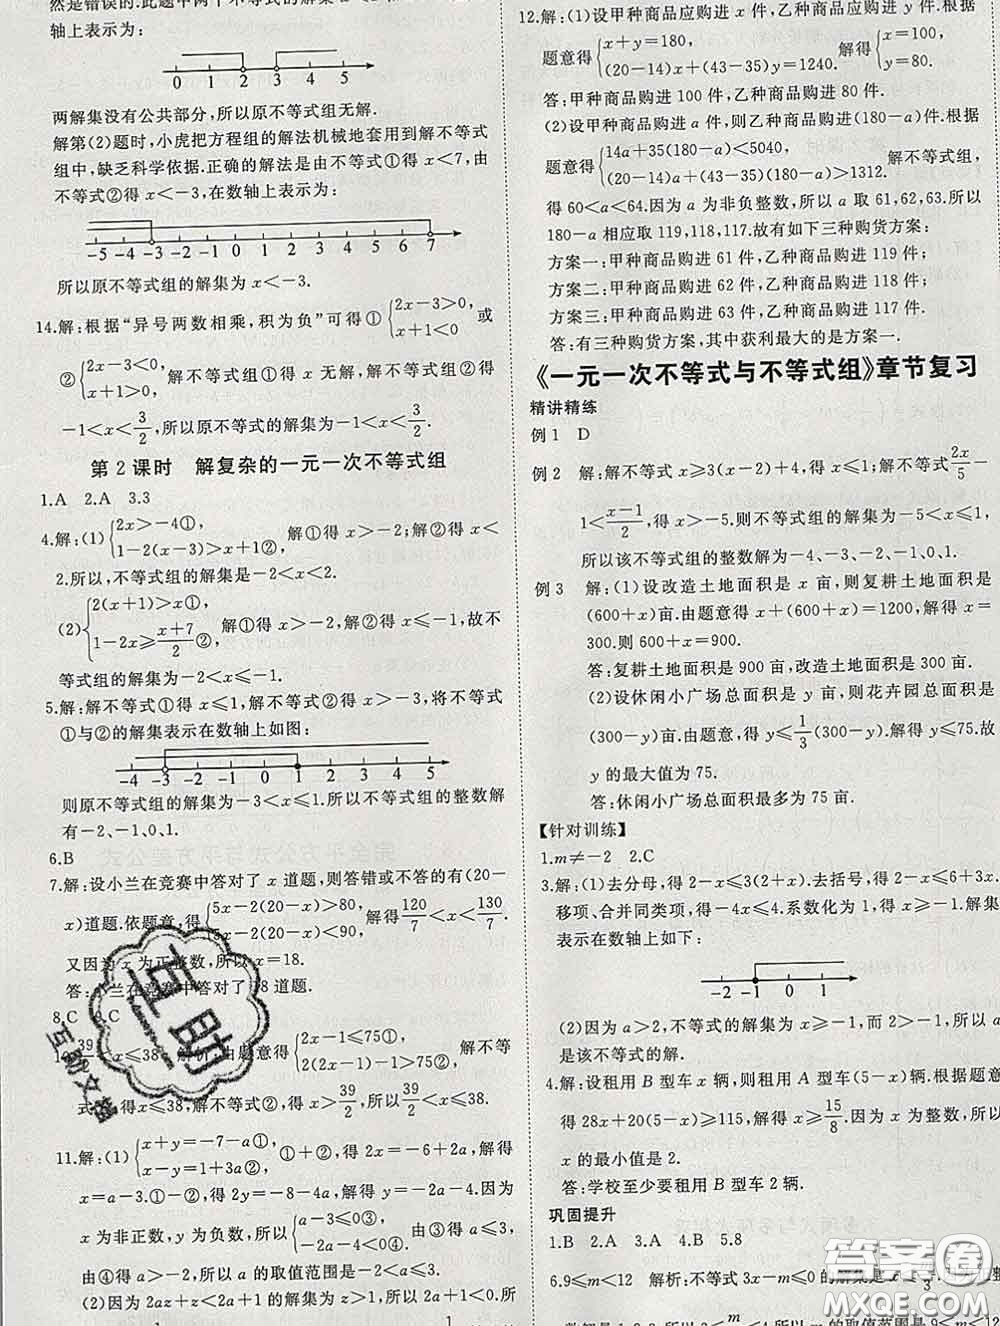 轴上表示为:
0 1 2 3 4 5
两解集没有公共部分,所以原不等式组无解.
解第(2)题时,小虎把方程组的解法机械地套用到解不等式
组中,缺乏科学依据.正确的解法是由不等式①得x<7,由
不等式②得x<-3,在数轴上表示为:
-5 -4 -3 -2 -1 0 1 2 3 4 5 6 7
所以原不等式组的解集为x<-3.
14.解:根据“异号两数相乘,积为负”可得①{2x-3>0, x+1<0 或
②{2x-3<0, x+1>0 解不等式组①得x无解,解不等式组②得
-1<x<3/2,所以原不等式的解集为-1<x<3/2.
第2课时 解复杂的一元一次不等式组
1.A 2.A 3.3
4.解:(1){2x>-4①, 1-2(x-3)>x+1②, 解①得x>-2;解②得x<
2.所以,不等式组的解集是-2<x<2.
(2){2(x+1)>x①, 1-2x≥(x+7)/2②, 解①得x>-2,解②得x≤-1,故不
等式组的解集为-2<x≤-1.
5.解:解不等式①得x≤1,解不等式②得x>-3,将不等式
①与②的解集表示在数轴上如图:
-4 -3 -2 -1 0 1 2 3 4 5
则原不等式组的解集为-3<x≤1.所以不等式组的整数解
有-2、-1、0、1.
6.B
7.解:设小兰在竞赛中答对了x道题,则答错或不答的有(20-
x)道题.依题意,得{5x-2(20-x)>80, 5x-2(20-x)<90, 解得120/7<x<130/7.
又因为x为正整数,所以x=18.
答:小兰在竞赛中答对了18道题.
8.C 9.C
10.39/2<x≤38 解析:由题意得{2x-1≤75①, 2(2x-1)-1>75②, 解不等
式①,得x≤38,解不等式②,得x>39/2,所以39/2<x≤38.
11.解:(1){x+y=-7-a①, x-y=1+3a②, ①+②,得2x=-6+2a,得
x=a-3.①-②,得2y=-8-4a,得y=-2a-4.因为
x为非正数,y为负数,所以{a-3≤0③, -2a-4<0④,
由③④得,所以a的取值范围是-2<a≤3.
(2)因为2az+z<2a+1的解集为z>1,所以2a+1<0.所
12.解:(1)设甲种商品应购进x件,乙种商品应购进y件.根据
题意得{x+y=180, (20-14)x+(43-35)y=1240. 解得{x=100, y=80.
答:甲种商品购进100件,乙种商品购进80件.
(2)设甲种商品购进a件,则乙种商品购进(180-a)件.根据
题意得{14a+35(180-a)<5040, (20-14)a+(43-35)(180-a)>1312. 解不等式组,
得60<a<64.因为a为非负整数,所以a取61,62,63.所以
180-a相应取119,118,117.故有如下三种购货方案:
方案一:甲种商品购进61件,乙种商品购进119件;
方案二:甲种商品购进62件,乙种商品购进118件;
方案三:甲种商品购进63件,乙种商品购进117件.
答:有三种购货方案,其中获利最大的是方案一.
《一元一次不等式与不等式组》章节复习
精讲精练
例1 D
例2 解:解不等式x≥3(x-2)+4,得x≤1;解不等式2x/5-
1<(x-1)/2,得x>-5.则不等式组的解集为-5<x≤1,
所以该不等式组的整数解为-4、-3、-2、-1、0、1.
例3 解:(1)设改造土地面积是x亩,则复耕土地面积是
(600+x)亩.由题意得x+(600+x)=1200,解得x=
300.则600+x=900.
答:复耕土地面积是900亩,改造土地面积是300亩.
(2)设休闲小广场总面积是y亩,则花卉园总面积是
(300-y)亩.由题意,得y≤1/3(300-y).解得y≤75.故
y的最大值为75.
答:休闲小广场总面积最多为75亩.
【针对训练】
1.m≠-2 2.C
3.解:(1)去分母,得2-x≤3(2+x).去括号,得2-x≤6+3x.
移项、合并同类项,得-4x≤4.系数化为1,得x≥-1.解集
表示在数轴上如下:
-2 -1 0 1
(2)因为a>2,不等式的解集为x≥-1,而2>-1,所以a
是该不等式的解.
4.解:设租用B型车x辆,则租用A型车(5-x)辆.根据题意
得28x+20(5-x)≥115,解得x≥15/8.因为x为整数,所以
x的最小值是2.
答:学校至少要租用B型车2辆.
巩固提升
1.B 2.A 3.A 4.B 5.8
6.9≤m<12 解析:不等式3x-m≤0的解集是x≤m/3
互助
互助文摘
答案圈
MXQE.COM